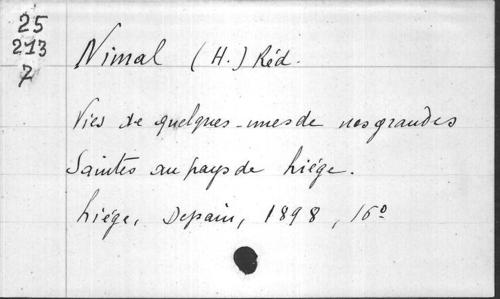 25
213
7
Nimal (H.) Réd.
Vies de quelques-unes de nos grandes
Saintes au pays de Liége.
Liége, Depain, 1898, 16º